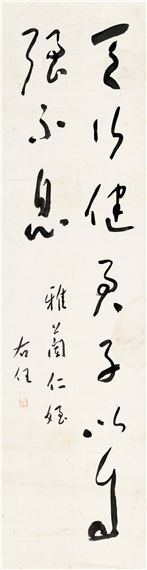 天行健君子以自
强不息
雅兰仁侄
右任